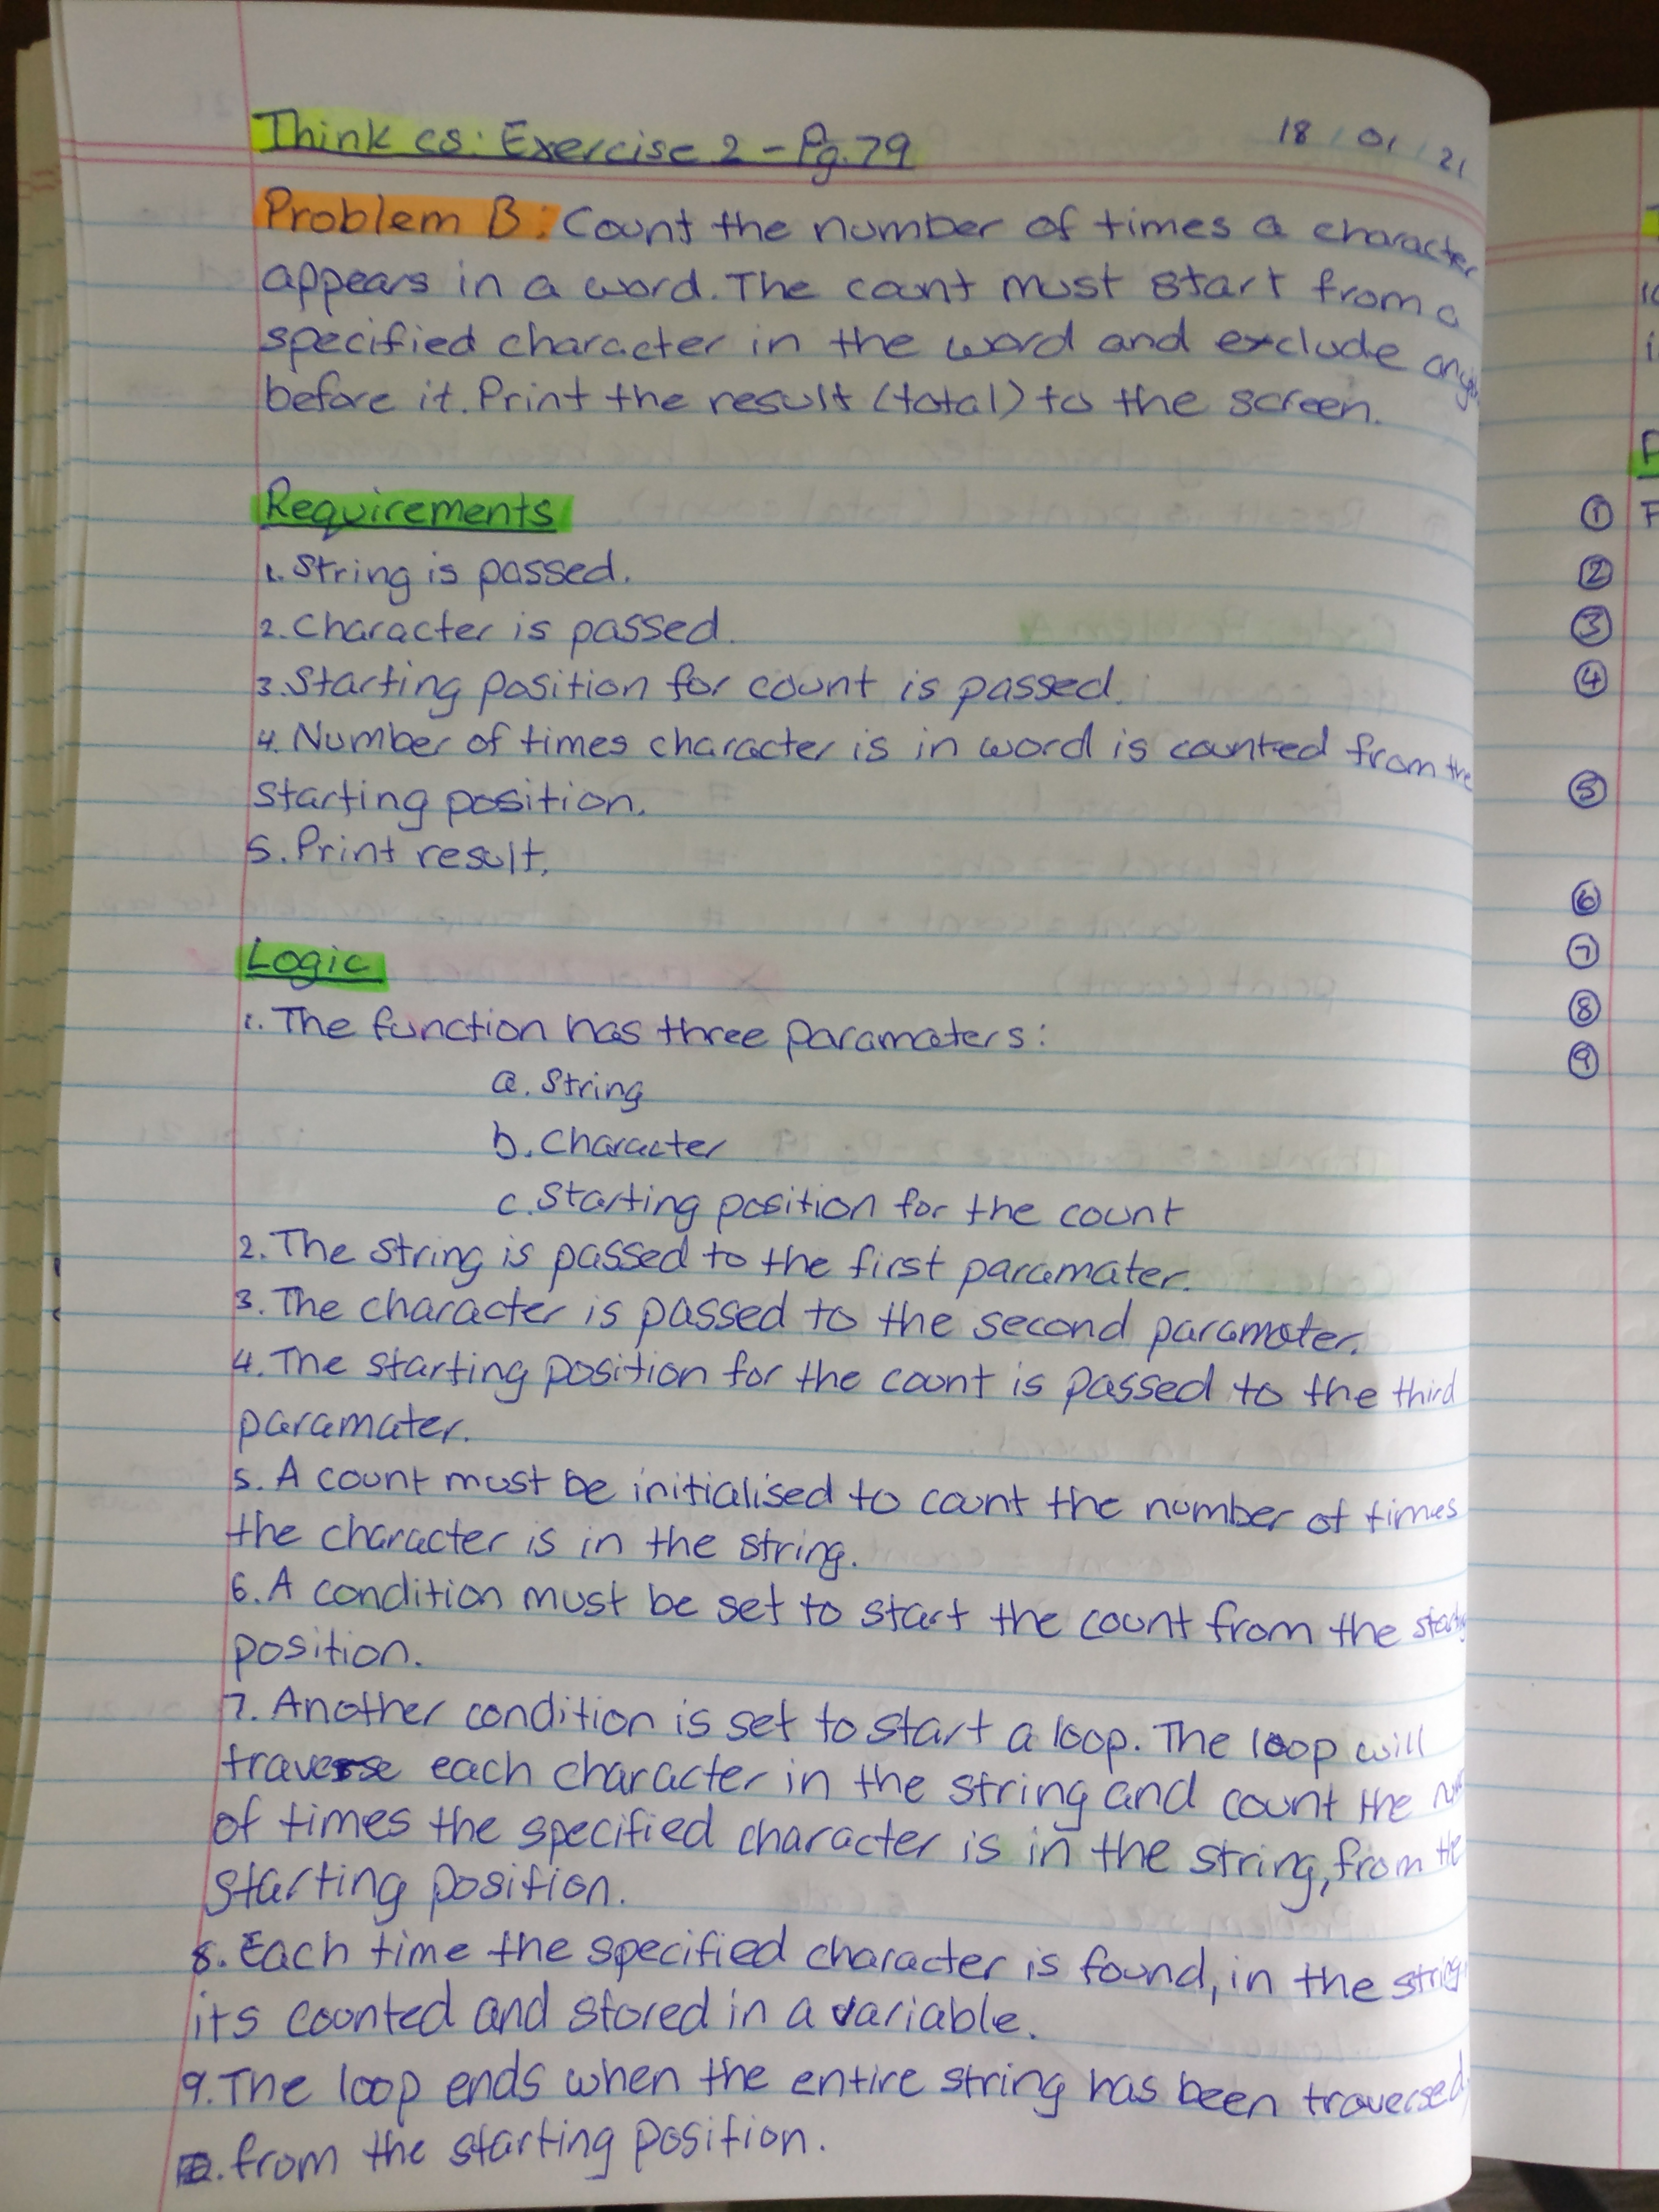 Think cs: Exercise 2 - Pg.79
18/01/21
Problem B: Count the number of times a character
appears in a word. The count must start from a
specified character in the word and exclude
before it. Print the result (total) to the screen.
Requirements
1. String is passed.
2. Character is passed.
3. Starting position for count is passed.
4. Number of times character is in word is counted from the
starting position.
5. Print result.
Logic
1. The function has three paramaters:
a. String
b. Character
c. Starting position for the count
2. The string is passed to the first paramater.
3. The character is passed to the second paramater.
4. The starting position for the count is passed to the third
paramater.
5. A count must be initialised to count the number of times
the character is in the string.
6. A condition must be set to start the count from the
position.
7. Another condition is set to start a loop. The loop will
traverse each character in the string and count the
of times the specified character is in the string, from the
starting position.
8. Each time the specified character is found, in the string
its counted and stored in a variable.
9. The loop ends when the entire string has been traversed
from the starting position.
①
②
③
④
⑤
⑥
⑦
⑧
⑨